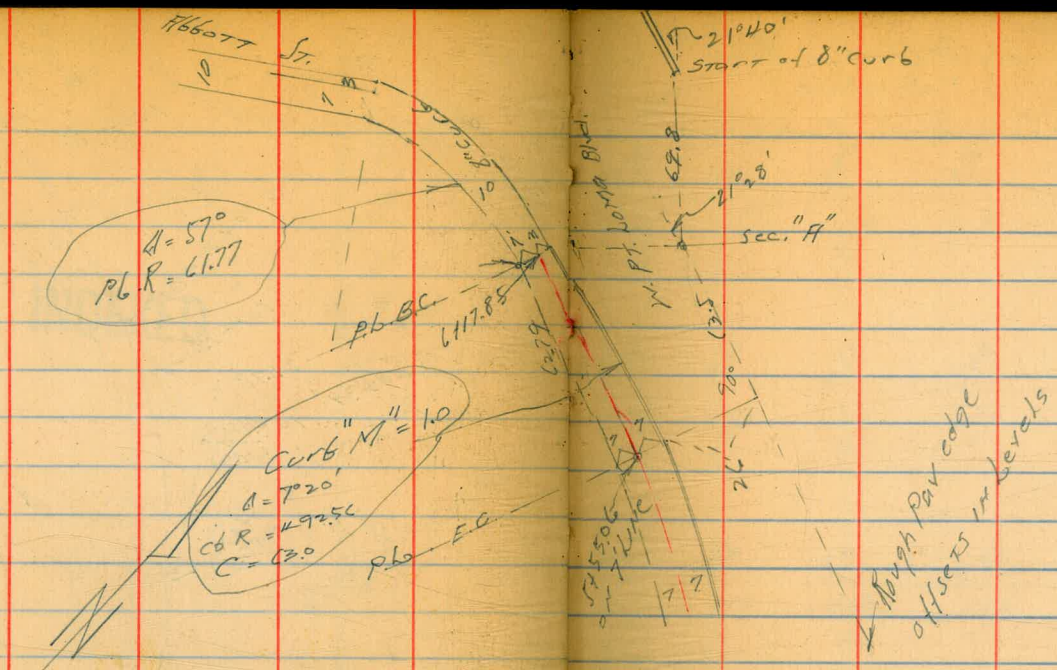 Abbott St.
10
7
3
8" Curb
10
Δ = 57°
P.L. R = 61.77
P.L. B.C.
6+17.85
62.79
Curb "M" = 1.0
Δ = 7°20'
Cb R = 492.56
C = 63.0
P.L. E.C.
5+55.06
on 7' Line
7
7
7
7
21°40'
Start of 8" Curb
W. Pt. Loma Blvd.
21°28'
Sec. "A"
63.5
90°
26
Rough Pav edge
offsets in Levels
N